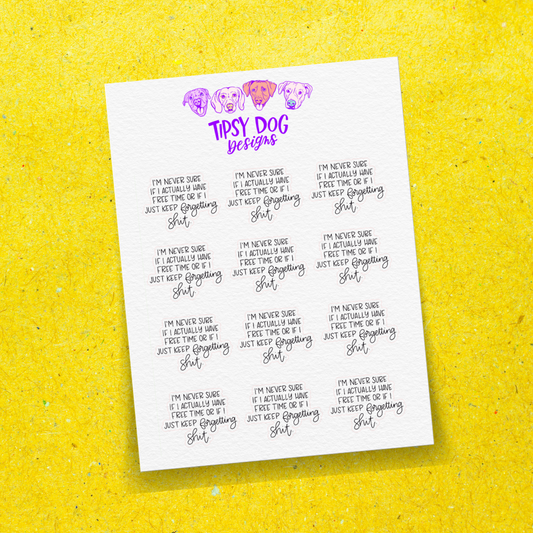 TIPSY DOG
Designs
I'M NEVER SURE
IF I ACTUALLY HAVE
FREE TIME OR IF I
JUST KEEP forgetting
shit
I'M NEVER SURE
IF I ACTUALLY HAVE
FREE TIME OR IF I
JUST KEEP forgetting
shit
I'M NEVER SURE
IF I ACTUALLY HAVE
FREE TIME OR IF I
JUST KEEP forgetting
shit
I'M NEVER SURE
IF I ACTUALLY HAVE
FREE TIME OR IF I
JUST KEEP forgetting
shit
I'M NEVER SURE
IF I ACTUALLY HAVE
FREE TIME OR IF I
JUST KEEP forgetting
shit
I'M NEVER SURE
IF I ACTUALLY HAVE
FREE TIME OR IF I
JUST KEEP forgetting
shit
I'M NEVER SURE
IF I ACTUALLY HAVE
FREE TIME OR IF I
JUST KEEP forgetting
shit
I'M NEVER SURE
IF I ACTUALLY HAVE
FREE TIME OR IF I
JUST KEEP forgetting
shit
I'M NEVER SURE
IF I ACTUALLY HAVE
FREE TIME OR IF I
JUST KEEP forgetting
shit
I'M NEVER SURE
IF I ACTUALLY HAVE
FREE TIME OR IF I
JUST KEEP forgetting
shit
I'M NEVER SURE
IF I ACTUALLY HAVE
FREE TIME OR IF I
JUST KEEP forgetting
shit
I'M NEVER SURE
IF I ACTUALLY HAVE
FREE TIME OR IF I
JUST KEEP forgetting
shit